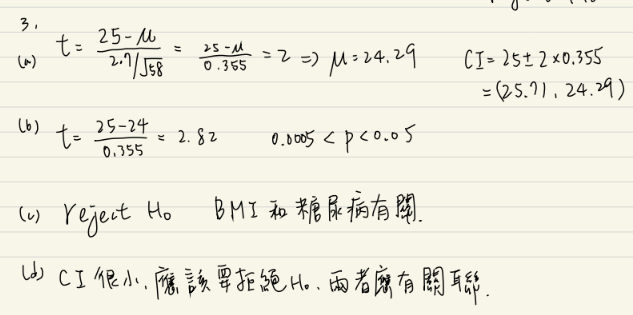 3.
(a) t = 25-μ / 2.7/√58 = 25-μ / 0.355 = 2 => μ = 24.29 CI = 25 ± 2 × 0.355
= (25.71, 24.29)
(b) t = 25-24 / 0.355 = 2.82 0.0005 < p < 0.05
(c) reject H₀ BMI 和糖尿病有關.
(d) CI 很小, 應該要拒絕 H₀. 兩者應有關聯.